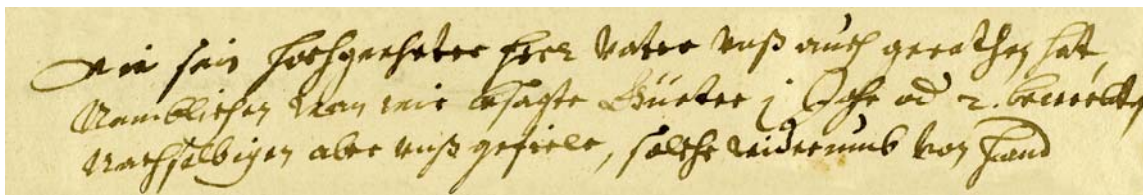 wie sein hochgeehrter Herr Vater unß auch gerathen hat,
Namblichen wan wir besagte Güeter j Jahr od 2. bewerbte
Nachselbigen aber unß gefiele, solche widerumb von Hand